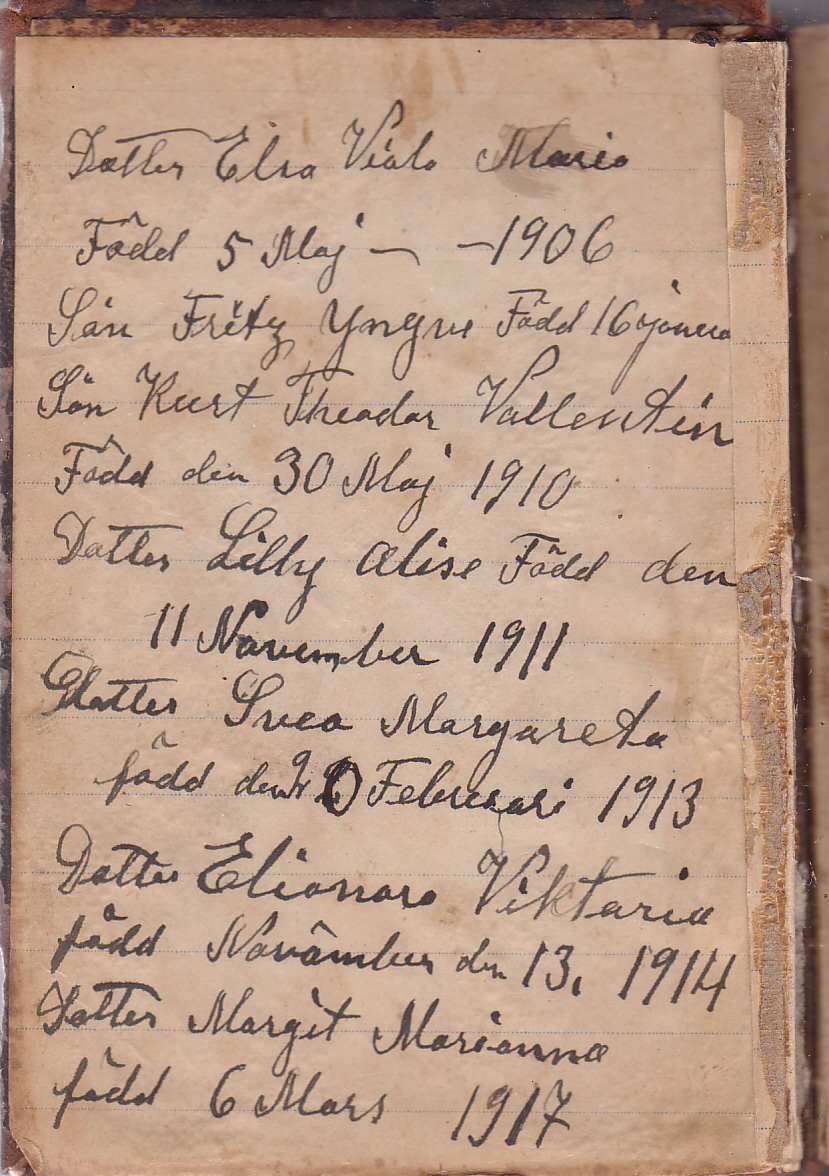 Dotter Elsa Viola Maria
Född 5 Maj — — 1906
Sån Fritz Yngve Född 16
Sön Kurt Theodor Vallentin
Född den 30 Maj 1910
Dotter Lilly Alise Född den
11 November 1911
Dotter Svea Margareta
född den 20 Februari 1913
Dotter Elionara Viktoria
född November den 13, 1914
Dotter Margit Marianna
född 6 Mars 1917